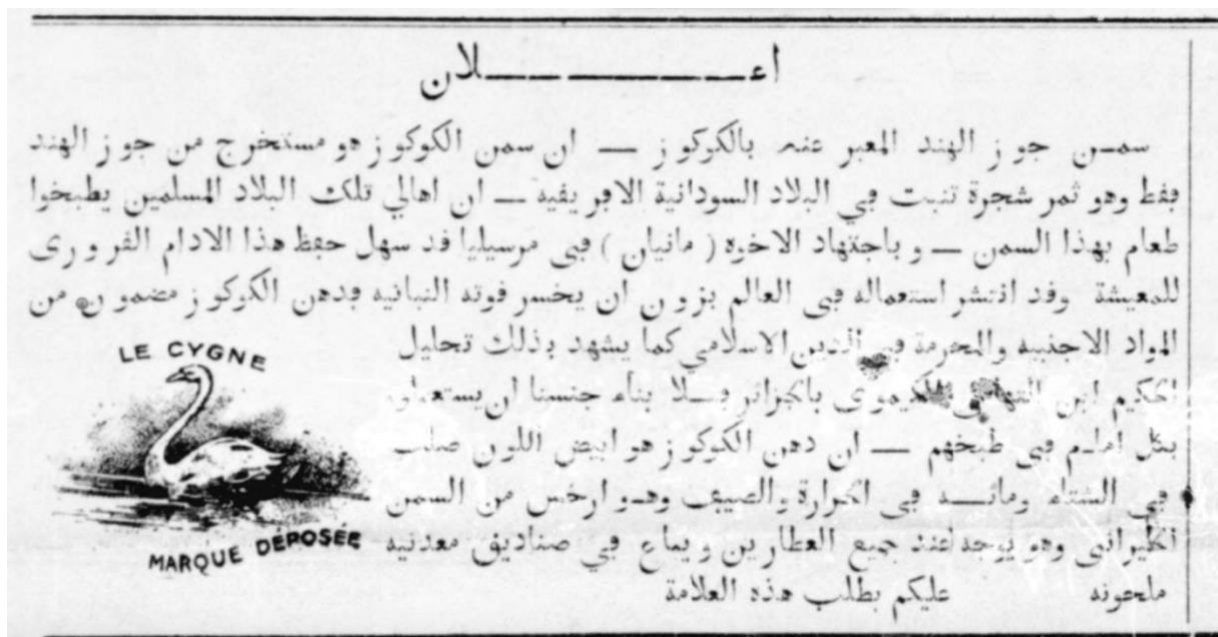 اعـــلان
سمن جوز الهند المعبر عنه بالكوكوز — ان سمن الكوكوز هو مستخرج من جوز الهند
بفط وهو ثمر شجرة تنبت في البلاد السودانية الافريفية — ان اهالي تلك البلاد المسلمين يطبخوا
طعام بهذا السمن — و باجتهاد الاخوة ( مانيان ) في مرسيليا فد سهل حفظ هذا الادام الضروري
للمعيشة وفد انتشر استعماله في العالم بزون ان يخسر فوته النباتية فدهن الكوكوز مضمون من
المواد الاجنبيه والمحرمة في الدين الاسلامي كما يشهد بذلك تحليل
الحكيم ابن بالجزائر جنسنا ان يستعملوه
بكل في طبخهم — ان دهن الكوكوز هو ابيض اللون صلب
في الشتاء في الحرارة والصيف وهو ارخس من السمن
الحيواني وهو يوجد عند جميع العطارين ويباع في صناديق معدنيه
ملحونه عليكم بطلب هذه العلامة
LE CYGNE
MARQUE DÉPOSÉE